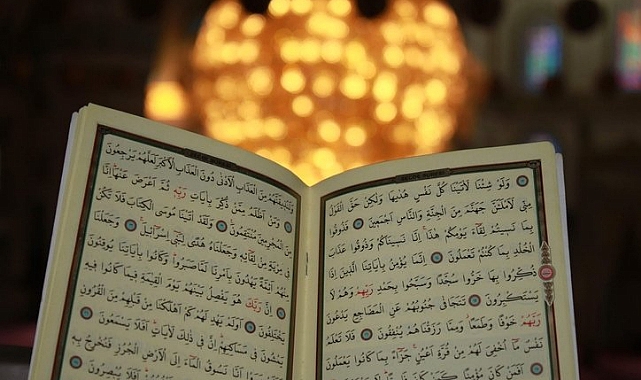 وَلَوْ شِئْنَا لَاٰتَيْنَا كُلَّ نَفْسٍ هُدٰيهَا وَلٰكِنْ حَقَّ الْقَوْلُ
مِنّ۪ي لَاَمْلَـَٔنَّ جَهَنَّمَ مِنَ الْجِنَّةِ وَالنَّاسِ اَجْمَع۪ينَ فَذُوقُوا
بِمَا نَس۪يتُمْ لِقَٓاءَ يَوْمِكُمْ هٰذَا اِنَّا نَس۪ينَاكُمْ وَذُوقُوا عَذَابَ
الْخُلْدِ بِمَا كُنْتُمْ تَعْمَلُونَ اِنَّمَا يُؤْمِنُ بِاٰيَاتِنَا الَّذ۪ينَ اِذَا
ذُكِّرُوا بِهَا خَرُّوا سُجَّدًا وَسَبَّحُوا بِحَمْدِ رَبِّهِمْ وَهُمْ لَا
يَسْتَكْبِرُونَ تَتَجَافٰى جُنُوبُهُمْ عَنِ الْمَضَاجِعِ يَدْعُونَ
رَبَّهُمْ خَوْفًا وَطَمَعًا وَمِمَّا رَزَقْنَاهُمْ يُنْفِقُونَ فَلَا تَعْلَمُ
نَفْسٌ مَٓا اُخْفِيَ لَهُمْ مِنْ قُرَّةِ اَعْيُنٍ جَزَٓاءً بِمَا كَانُوا يَعْمَلُونَ
اَفَمَنْ كَانَ مُؤْمِنًا كَمَنْ كَانَ
وَلَنُذ۪يقَنَّهُمْ مِنَ الْعَذَابِ الْاَدْنٰى دُونَ الْعَذَابِ الْاَكْبَرِ لَعَلَّهُمْ يَرْجِعُونَ
وَمَنْ اَظْلَمُ مِمَّنْ ذُكِّرَ بِاٰيَاتِ رَبِّه۪ ثُمَّ اَعْرَضَ عَنْهَا اِنَّا
مِنَ الْمُجْرِم۪ينَ مُنْتَقِمُونَ وَلَقَدْ اٰتَيْنَا مُوسَى الْكِتَابَ فَلَا تَكُنْ
ف۪ي مِرْيَةٍ مِنْ لِقَٓائِه۪ وَجَعَلْنَاهُ هُدًى لِبَن۪ٓي اِسْرَٓاء۪يلَ وَجَعَلْنَا
مِنْهُمْ اَئِمَّةً يَهْدُونَ بِاَمْرِنَا لَمَّا صَبَرُوا وَكَانُوا بِاٰيَاتِنَا يُوقِنُونَ
اِنَّ رَبَّكَ هُوَ يَفْصِلُ بَيْنَهُمْ يَوْمَ الْقِيٰمَةِ ف۪يمَا كَانُوا ف۪يهِ
يَخْتَلِفُونَ اَوَلَمْ يَهْدِ لَهُمْ كَمْ اَهْلَكْنَا مِنْ قَبْلِهِمْ مِنَ الْقُرُونِ
يَمْشُونَ ف۪ي مَسَاكِنِهِمْ اِنَّ ف۪ي ذٰلِكَ لَاٰيَاتٍ اَفَلَا يَسْمَعُونَ
اَنَّا نَسُوقُ الْمَٓاءَ اِلَى الْاَرْضِ الْجُرُزِ فَنُخْرِجُ بِه۪
اَفَلَا يُبْصِرُونَ